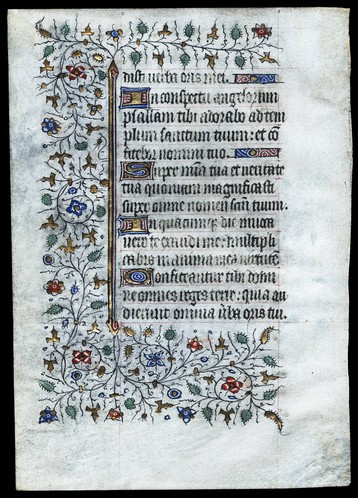 disti verba oris mei.
In conspectu angelorum
psallam tibi adorabo ad tem
plum sanctum tuum: et cō
fitebor nomini tuo.
Super mīa tua et veritate
tua quoniam magnificasti
super omne nomen sanctum tuum.
In quacumque die invoca
vero te exaudi me: multipli
cabis in anima mea virtutē.
Confiteantur tibi domī
ne omnes reges terre: quia au
dierunt omnia v̄ba oris tui.